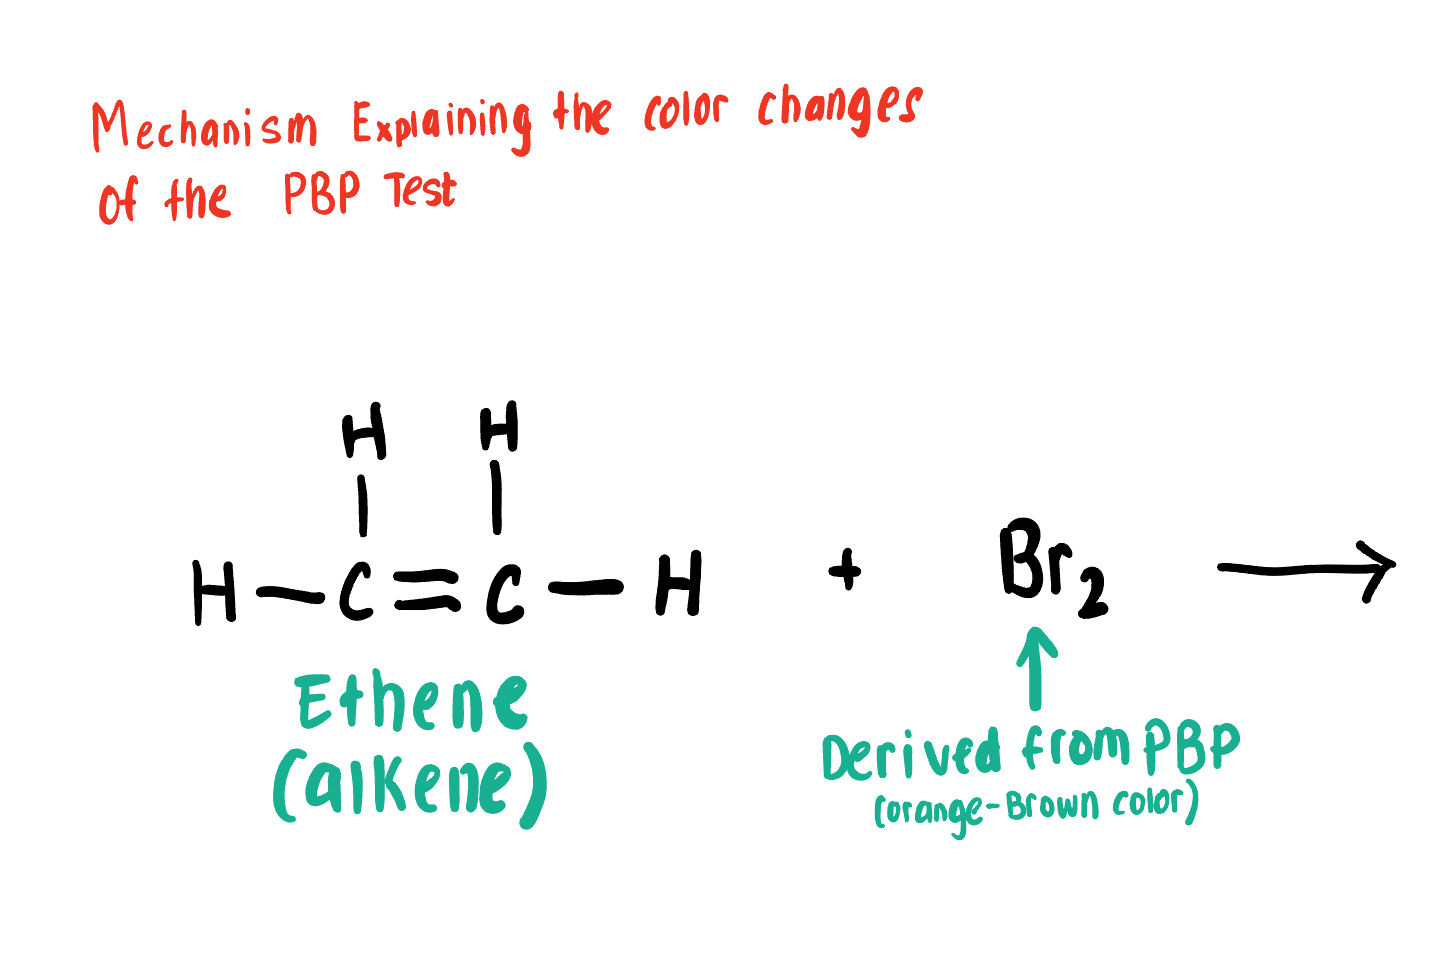 Mechanism Explaining the color changes
of the PBP Test
H H
H-C=C-H + Br₂ →
Ethene
(alkene)
Derived from PBP
(orange-Brown color)